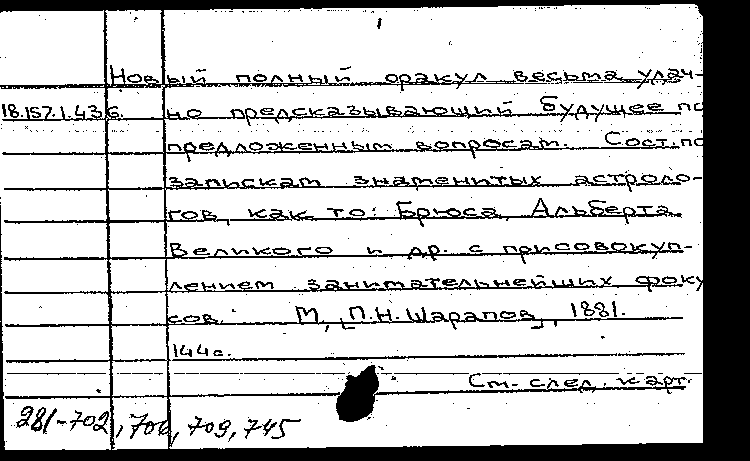 Новый полный оракул весьма удач-
18.157.1.436. но предсказывающий будущее по
предложенным вопросам. Сост. по
запискам знаменитых астроло-
гов, как то: Брюса, Альберта
Великого и др. с присовокуп-
лением занимательнейших фоку
сов. М, [П.Н. Шарапов], 1881.
144с.
См. след. карт.
281-702, 706, 709, 745